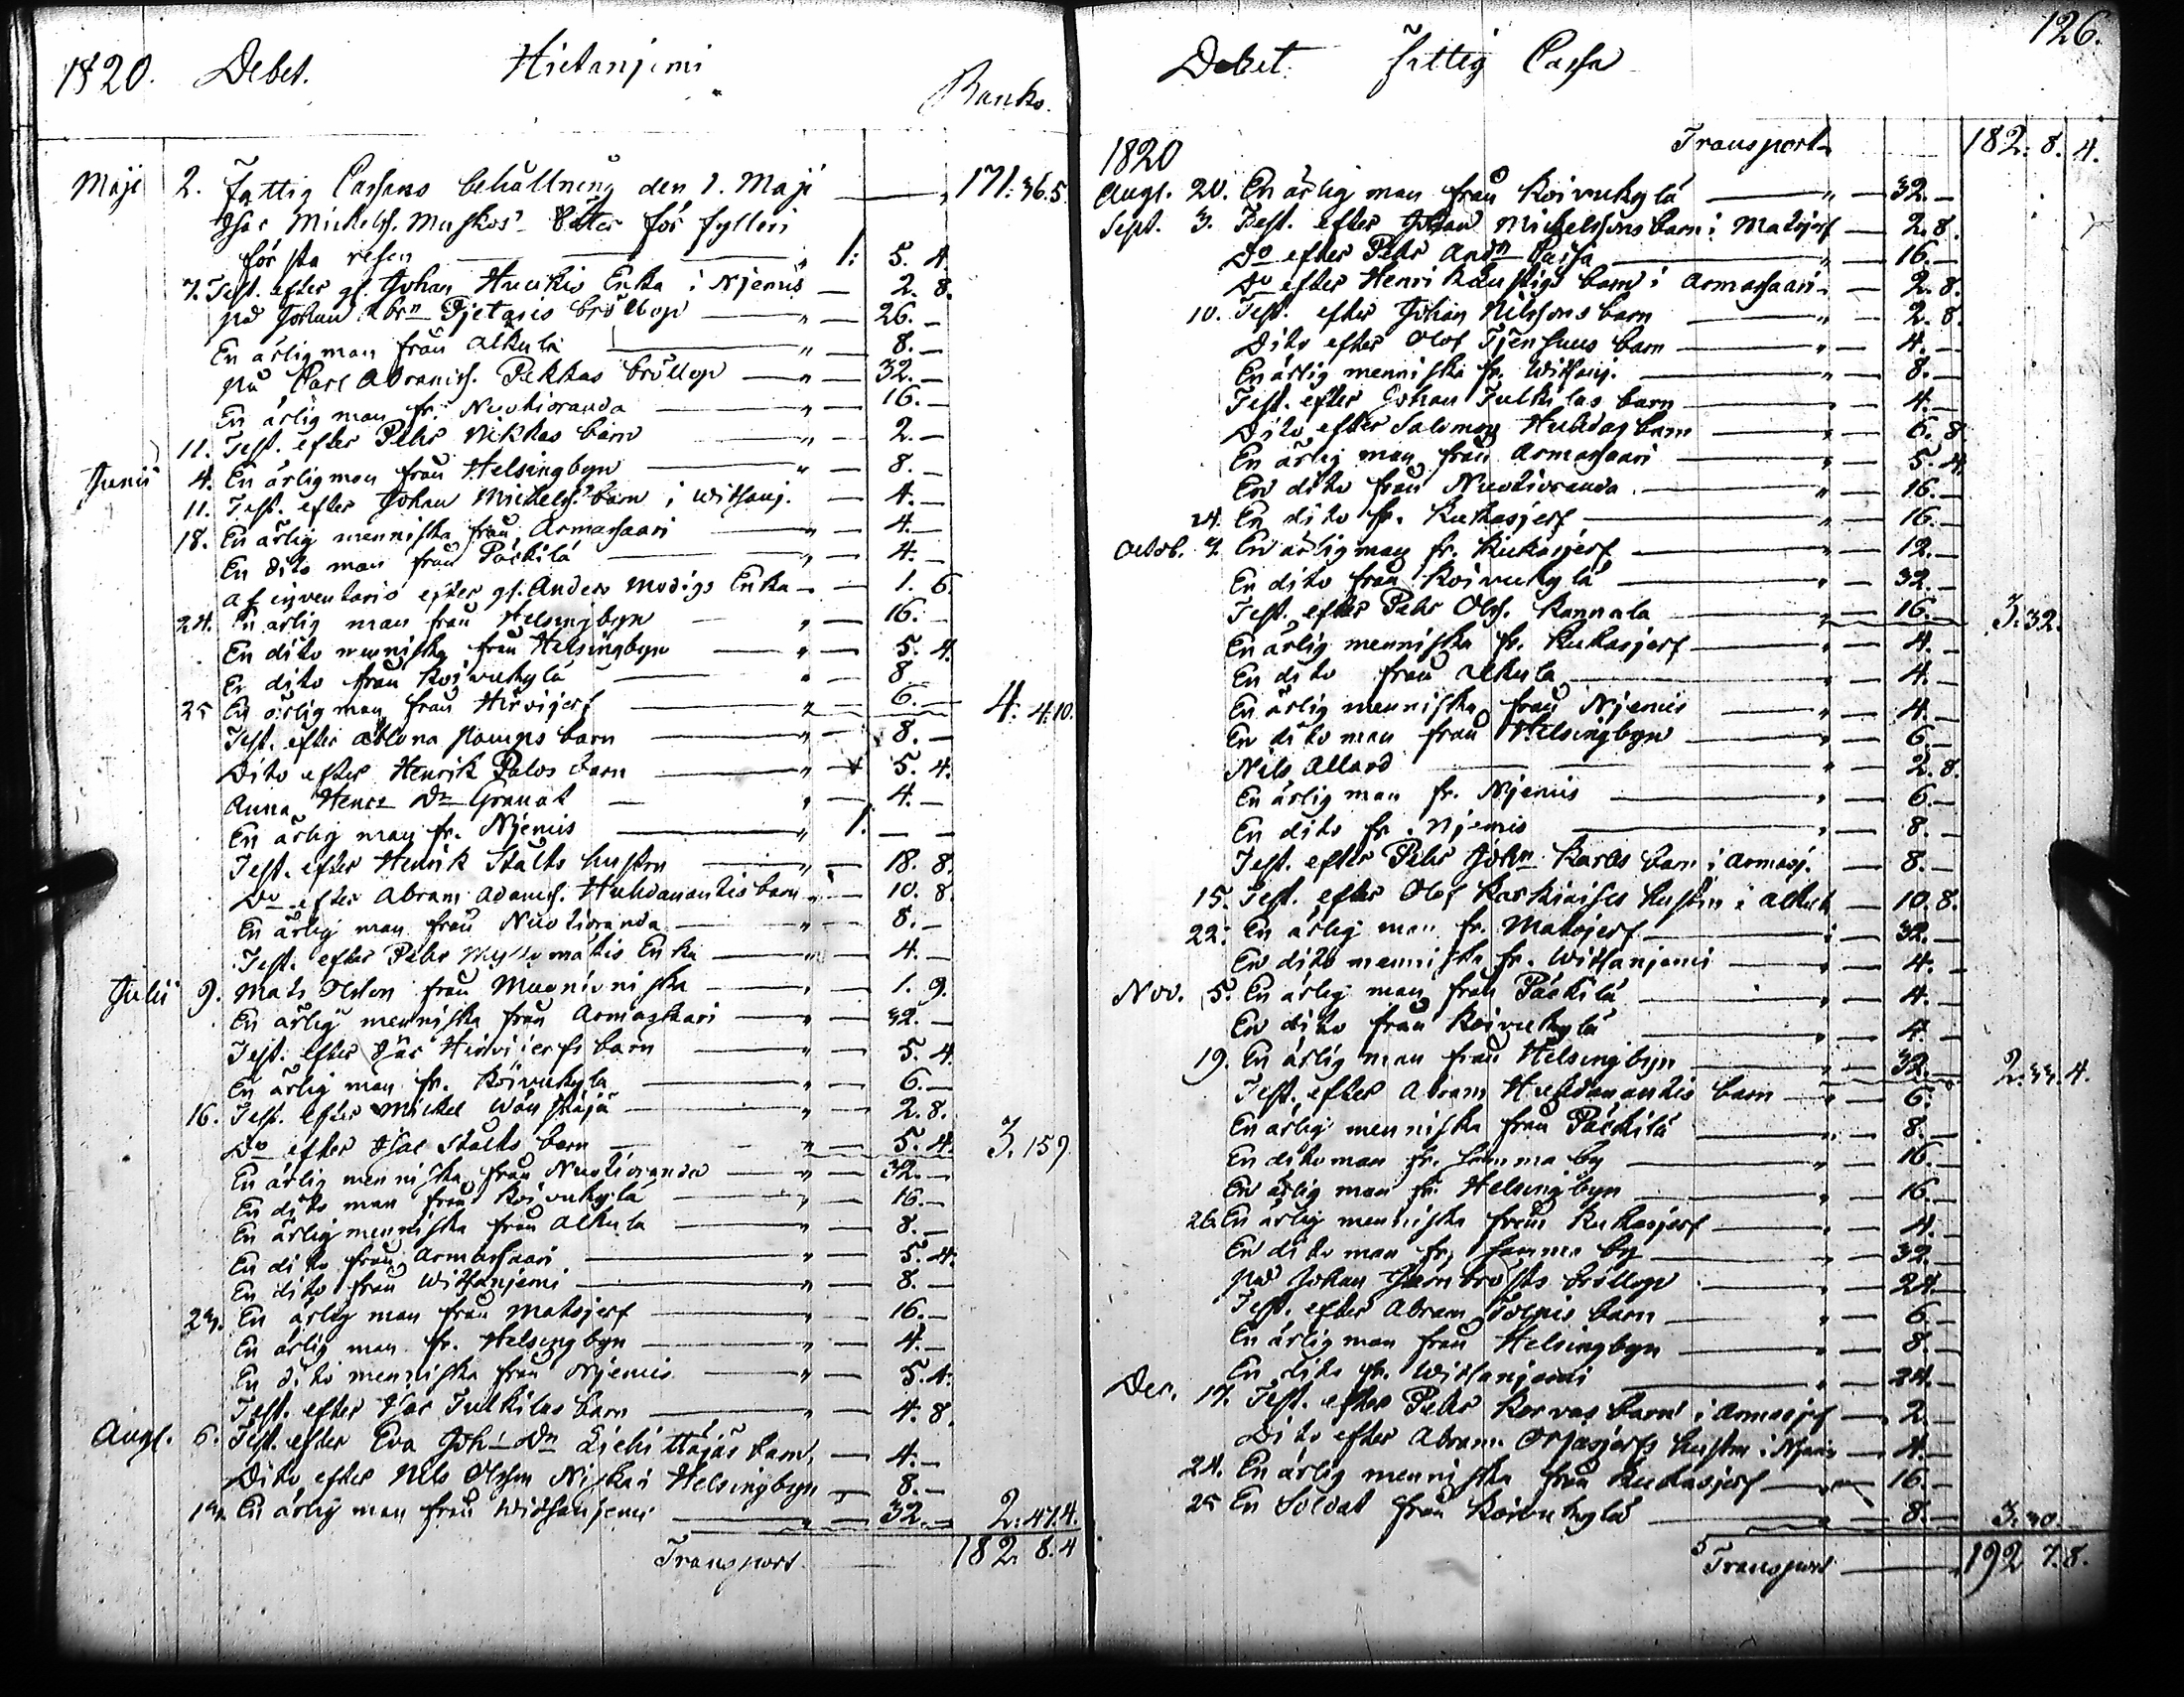 1820. Debet. Hietanjemi
Banko.
Maji 2. Fattig Cassans behållning den 1. Maji — 171:36.5.
Isac Mickelss. Muskos Böter för fylleri
första resen — 1: 5. 4.
7. Test. efter gl. Johan Huukis Enka i Njemis — 2. 8.
på Johan Pjetaris bröllop — 26. —
En ärlig man från Alkula — 8. —
på Carl Abramss. Pekkas bröllop — 32. —
En ärlig man fr. Nuotioranda — 16. —
11. Test. efter Pehr Nikkas barn — 2. —
Junii 4. En ärlig man från Helsingbyn — 8. —
11. Test. efter Johan Mickelss. barn i Witsanj. — 4. —
18. En ärlig menniska från Armassaari — 4. —
En dito man från Päckilä — 4. —
Af inventario efter gl. Anders Modigs Enka — 1. 6.
24. En ärlig man från Helsingbyn — 16. —
En dito menniska från Helsingbyn — 5. 4.
En dito från Koivukylä — 8 —
25 En ärlig man från Hirvijerf — 6. — 4: 4.10.
Test. efter barn — 8. —
Dito efter Henrik Palos barn — 5. 4.
Anna Henr. Dr Granat — 4. —
En ärlig man fr. Njemis — 1. — —
Test. efter Henrik Stålts hustru — 18. 8.
Do efter Abram Adamss. Huhdanantis barn — 10. 8.
En ärlig man från Nuotioranda — 8. —
Test. efter Pehr Myllymakis Enka — 4. —
Julii 9. Mats Olsson från Muoniniska — 1. 9.
En ärlig menniska från Armassari — 32. —
Test. efter Isac Hirvijerfs barn — 5. 4.
En ärlig man fr. Koivukyla — 6. —
16. Test. efter Mickel — 2. 8.
Do efter Isac Stålts barn — 5. 4. 3. 15 9
En ärlig menniska från Nuotioranda — 32. —
En dito man från Koivukylä — 16. —
En ärlig menniska från Alkula — 8. —
En dito från Armassaari — 5. 4.
En dito från Witsanjemi — 8. —
23. En ärlig man från Matojerf — 16. —
En ärlig man fr. Helsingbyn — 4. —
En dito menniska från Njemis — 5. 4.
Test. efter Isac Tulkilas barn — 4. 8.
Augl. 6. Test. efter Eva Joh. Dr barn — 4. —
Dito efter Nils Olsson Niska i Helsingbyn — 8. —
13. En ärlig man från Witsanjemi — 32. — 2: 47.4.
Transport — 182. 8. 4
126.
Debet. Fattig Cassa
1820 Transport 182. 8. 4.
Augl. 20. En ärlig man från Koivukylä — 32. —
Sept. 3. Test. efter Johan Michelssons barn i Matojerf — 2. 8.
Do efter Pehr Andn — 16. —
Do efter Henrik barn i Armassaari — 2. 8.
10. Test. efter Johan Nilssons barn — 2. 8.
Dito efter Olof barn — 4. —
En ärlig menniska fr. Witsanj. — 8. —
Test. efter Johan Tulkilas barn — 4. —
Dito efter Salomon Huhdas barn — 6. 8.
En ärlig man från Armassaari — 5. 4.
En dito från Nuotioranda — 16. —
24. En dito fr. Kukasjerf — 16. —
Octob. 7. En ärlig man fr. Kukasjerf — 12. —
En dito från Koivukylä — 32. —
Test. efter Pehr Olss. Kannala — 16. — 3. 32.
En ärlig menniska fr. Kukasjerf — 4. —
En dito från Alkula — 4. —
En ärlig menniska från Njemis — 4. —
En dito man från Helsingbyn — 6. —
Nils Allard — 2. 8.
En ärlig man fr. Njemis — 6. —
En dito fr. Njemis — 8. —
Test. efter Pehr John barn i Armasj. — 8. —
15. Test. efter Olof hustru i Alkula — 10. 8.
22. En ärlig man fr. Matojerf — 32. —
En dito menniska fr. Witsanjemi — 4. —
Nov. 5. En ärlig man från Päckilä — 4. —
En dito från Koivukylä — 4. —
19. En ärlig man från Helsingbyn — 32. — 2. 33. 4.
Test. efter Abram Huhdanantis barn — 6. —
En ärlig menniska från Päckilä — 8. —
En dito man fr. samma by — 16. —
En ärlig man fr. Helsingbyn — 16. —
26. En ärlig menniska från Kukasjerf — 4. —
En dito man fr. samma by — 32. —
på Johan bröllop — 24. —
Test. efter Abram barn — 6. —
En ärlig man från Helsingbyn — 8. —
En dito fr. Witsanjemi — 24. —
Dec. 17. Test. efter Pehr Korvas barn i Armasjerf — 2. —
Dito efter Abram Orjasjerfs hustru i Njemis — 4. —
24. En ärlig menniska från Kukasjerf — 16. —
25 En Soldat från Koivukylä — 8. — 3. 30. —
Transport — 192 7. 8.